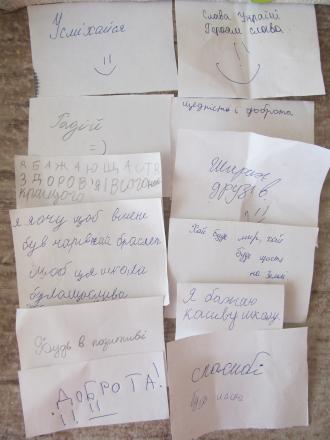 Усміхайся
Слава Україні
Героям слава
Радій
=)
щедність і доброта
Я БАЖАЮ ЩАСТЯ
ЗДОРОВ'Я І ВСЬОГО
КРАЩОГО
Щирих
друзів
!!
я хочу щоб в мене
був чарівний браслет
і щоб ця школа
була щаслива
Хай буде мир, хай
буде щастя
на землі
Я бажаю
красиву школу
Будь в позитиві
спасибі
ДОБРОТА!